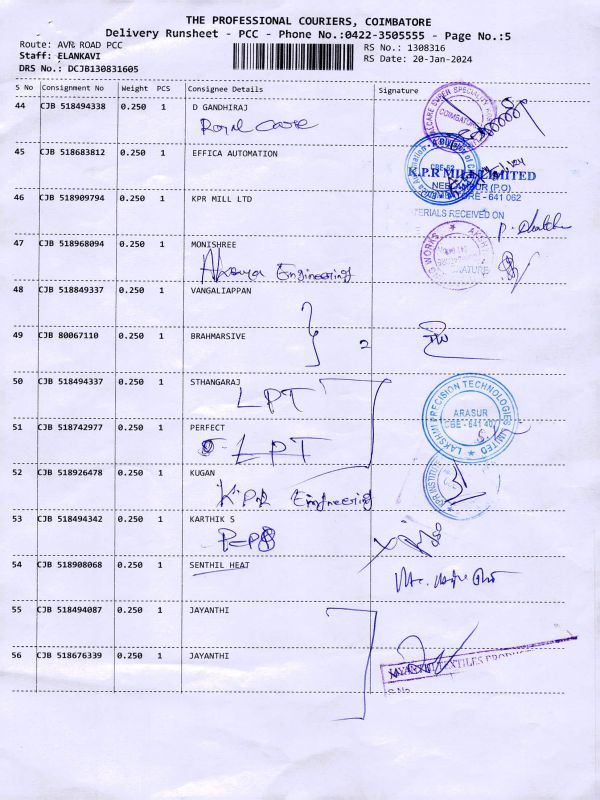 THE PROFESSIONAL COURIERS, COIMBATORE
Delivery Runsheet - PCC - Phone No.:0422-3505555 - Page No.:5
Route: AVR ROAD PCC
RS No.: 1308316
Staff: ELANKAVI
RS Date: 20-Jan-2024
DRS No.: DCJB130831605
S No Consignment No Weight PCS Consignee Details Signature
44 CJB 518494338 0.250 1 D GANDHIRAJ
Royal Care
COIMBATORE
45 CJB 518683812 0.250 1 EFFICA AUTOMATION
K.P.R MILL LIMITED
46 CJB 518909794 0.250 1 KPR MILL LTD
COIMBATORE - 641 062
MATERIALS RECEIVED ON
47 CJB 518968094 0.250 1 MONISHREE
Engineering
SIGNATURE
48 CJB 518849337 0.250 1 VANGALIAPPAN
49 CJB 80067110 0.250 1 BRAHMARSIVE
2
50 CJB 518494337 0.250 1 STHANGARAJ
LPT
LAKSHMI PRECISION TECHNOLOGIES LIMITED
ARASUR
CBE - 641 407
51 CJB 518742977 0.250 1 PERFECT
LPT
52 CJB 518926478 0.250 1 KUGAN
KPR Engineering
53 CJB 518494342 0.250 1 KARTHIK S
54 CJB 518908068 0.250 1 SENTHIL HEAT
55 CJB 518494087 0.250 1 JAYANTHI
56 CJB 518676339 0.250 1 JAYANTHI
S.No.